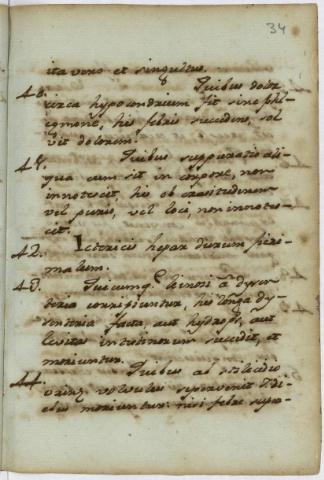 34
ita vero et singultus.
40. Quibus dolor
circa hypocondrium fit sine phle-
gmone, his febris succedens, sol
vit dolorem.
41. Quibus suppuratio ali-
qua cum sit in corpore, non
innotescit, his ob crasitudinem
vel puris, vel loci, non innotes-
cit.
42. Ictericis hepar durum fieri
malum.
43. Quicumq lienosi à dysen
teria corripiuntur, his longa dy-
senteria facta, aut hydrops, aut
levitas intestinorum succedit, et
moriuntur.
44. Quibus ab stilicidio
urinæ volvulus supervenit 7 di-
ebus moriuntur: nisi febre super-